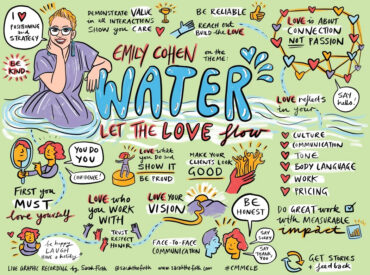 I ♥
POSITIONING
AND
STRATEGY
BE
KIND
DEMONSTRATE VALUE
IN ALL INTERACTIONS
SHOW YOU CARE
BE RELIABLE
REACH OUT
BUILD THE LOVE
LOVE IS ABOUT
CONNECTION
NOT PASSION
EMILY COHEN
ON THE
THEME:
WATER
LET THE LOVE flow
LOVE reflects
in your...
SAY
hello!
CULTURE
COMMUNICATION
TONE
BODY LANGUAGE
WORK
PRICING
YOU DO
YOU
CONFIDENCE!
FIRST YOU
MUST
love yourself
LOVE what
you do and
SHOW IT
BE PROUD
MAKE YOUR
CLIENTS LOOK
GOOD
LOVE who
YOU WORK
WITH
TRUST
RESPECT
HONOR
LOVE YOUR
VISION
BE
HONEST
SAY
SORRY
SAY
THANK
YOU
be happy
LAUGH
have a
FACE-TO-FACE
COMMUNICATION
DO GREAT WORK
WITH MEASURABLE
impact
GET STORIES
+ feedback
LIVE GRAPHIC RECORDING by